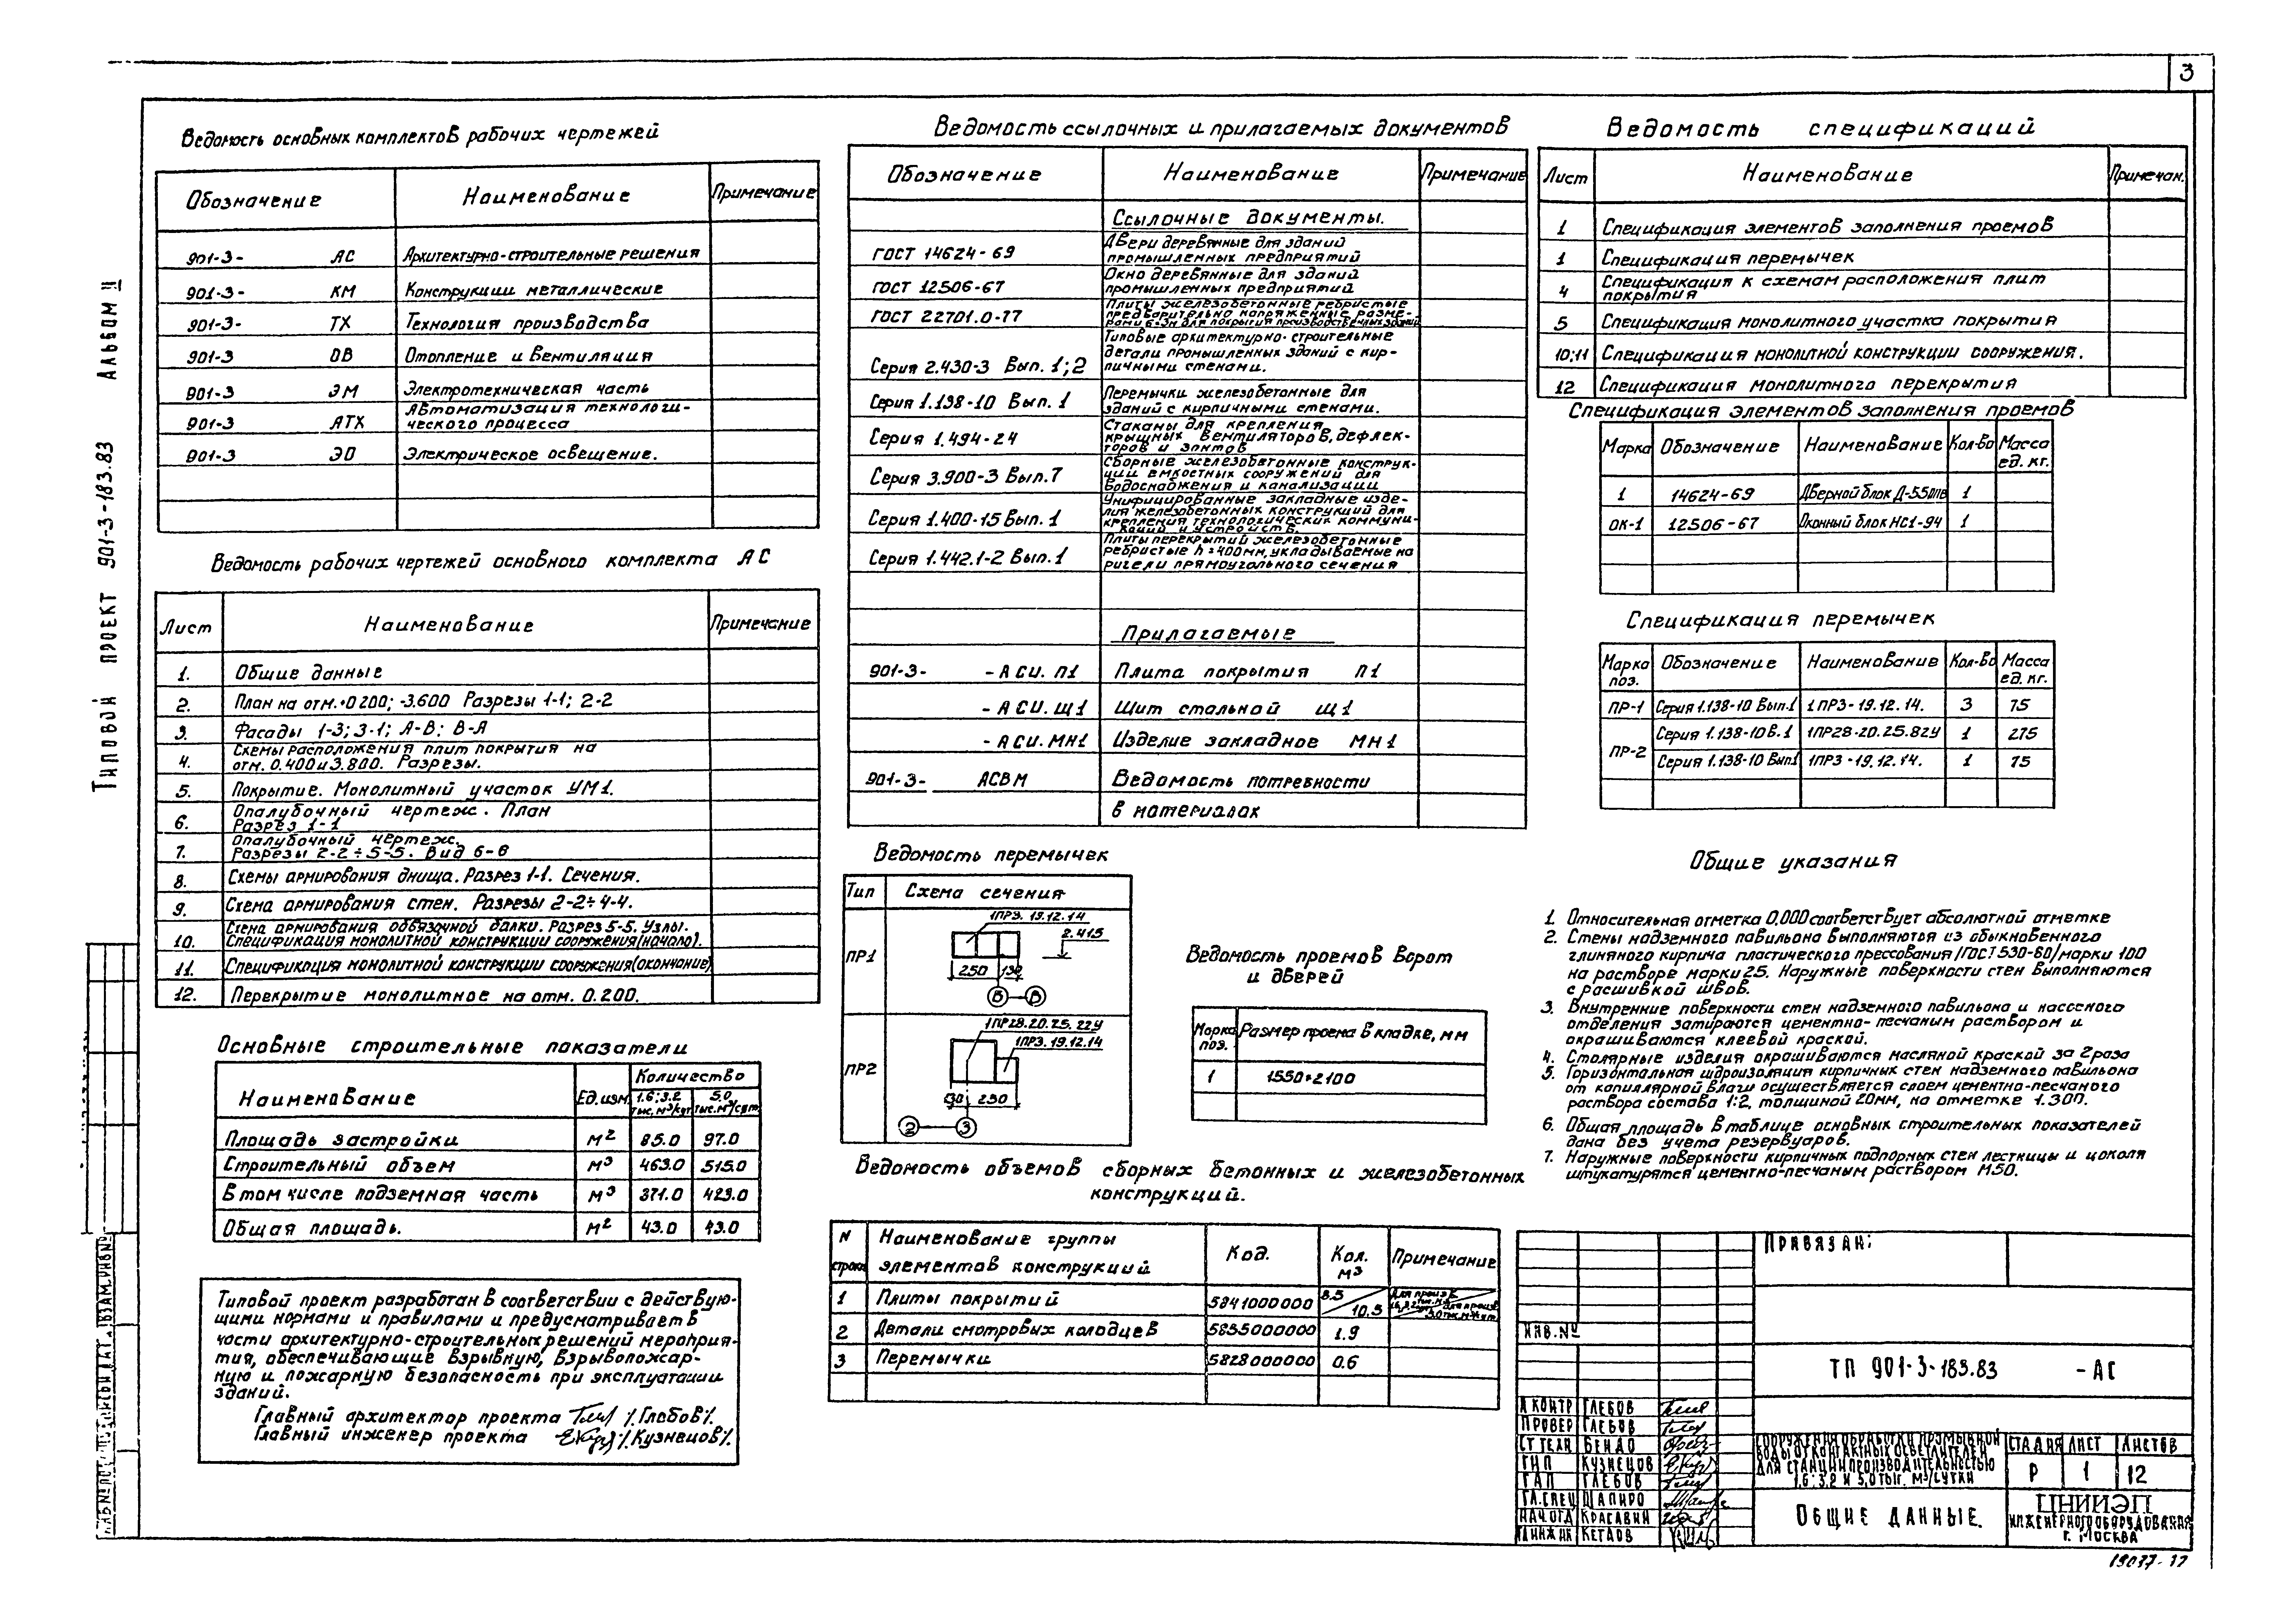 3
Типовой проект 901-3-183.83 Альбом II
Ведомость основных комплектов рабочих чертежей
Обозначение Наименование Примечание
901-3- АС Архитектурно-строительные решения
901-3- КМ Конструкции металлические
901-3- ТХ Технология производства
901-3 ОВ Отопление и вентиляция
901-3 ЭМ Электротехническая часть
901-3 АТХ Автоматизация технологи-
ческого процесса
901-3 ЭО Электрическое освещение.
Ведомость рабочих чертежей основного комплекта АС
Лист Наименование Примечание
1. Общие данные
2. План на отм. 0.200; -3.600 Разрезы 1-1; 2-2
3. Фасады 1-3; 3-1; А-В; В-А
4. Схемы расположения плит покрытия на
отм. 0.400 и 3.800. Разрезы.
5. Покрытие. Монолитный участок УМ1.
6. Опалубочный чертеж. План
Разрез 1-1
7. Опалубочный чертеж.
Разрезы 2-2÷5-5. Вид 6-6
8. Схемы армирования днища. Разрез 1-1. Сечения.
9. Схема армирования стен. Разрезы 2-2÷4-4.
10. Схема армирования обвязочной балки. Разрез 5-5. Узлы.
Спецификация монолитной конструкции сооружения(начало).
11. Спецификация монолитной конструкции сооружения(окончание)
12. Перекрытие монолитное на отм. 0.200.
Основные строительные показатели
Наименование Ед.изм. Количество
1.6; 3.2 тыс. м³/сут 5.0 тыс. м³/сут
Площадь застройки м² 85.0 97.0
Строительный объем м³ 463.0 515.0
В том числе подземная часть м³ 371.0 423.0
Общая площадь. м² 43.0 43.0
Типовой проект разработан в соответствии с действую-
щими нормами и правилами и предусматривает в
части архитектурно-строительных решений мероприя-
тия, обеспечивающие взрывную, взрывопожар-
ную и пожарную безопасность при эксплуатации
зданий.
Главный архитектор проекта /.Глебов/.
Главный инженер проекта /.Кузнецов/.
Ведомость ссылочных и прилагаемых документов
Обозначение Наименование Примечание
Ссылочные документы.
ГОСТ 14624-69 Двери деревянные для зданий
промышленных предприятий
ГОСТ 12506-67 Окно деревянные для зданий
промышленных предприятий
ГОСТ 22701.0-77 Плиты железобетонные ребристые
предварительно напряженные разме-
рами 6×3м для покрытия производственных зданий
Серия 2.430-3 Вып. 1; 2 Типовые архитектурно-строительные
детали промышленных зданий с кир-
пичными стенами.
Серия 1.138-10 Вып. 1 Перемычки железобетонные для
зданий с кирпичными стенами.
Серия 1.494-24 Стаканы для крепления
крышных вентиляторов, дефлек-
торов и зонтов
Серия 3.900-3 Вып.7 Сборные железобетонные конструк-
ции емкостных сооружений для
водоснабжения и канализации
Серия 1.400-15 Вып. 1 Унифицированные закладные изде-
лия железобетонных конструкций для
крепления технологических коммуни-
каций и устройств.
Серия 1.442.1-2 Вып. 1 Плиты перекрытий железобетонные
ребристые h=400мм, укладываемые на
ригели прямоугольного сечения
Прилагаемые
901-3- -АСИ. П1 Плита покрытия П1
-АСИ. Щ1 Щит стальной Щ1
-АСИ. МН1 Изделие закладное МН1
901-3- АСВМ Ведомость потребности
в материалах
Ведомость перемычек
Тип Схема сечения
ПР1 1ПР3. 19.12.14
2.415
250 130
Б В
ПР2 1ПР28.20.25.22У
1ПР3. 19.12.14
250
2 3
Ведомость проемов ворот
и дверей
Марка поз. Размер проема в кладке, мм
1 1550×2100
Ведомость объемов сборных бетонных и железобетонных
конструкций.
N строки Наименование группы
элементов конструкций Код. Кол. м³ Примечание
1 Плиты покрытий 5841000000 8.5 10.5
2 Детали смотровых колодцев 5855000000 1.9
3 Перемычки 5828000000 0.6
Ведомость спецификаций
Лист Наименование Примечан.
1 Спецификация элементов заполнения проемов
1 Спецификация перемычек
4 Спецификация к схемам расположения плит
покрытия
5 Спецификация монолитного участка покрытия
10;11 Спецификация монолитной конструкции сооружения.
12 Спецификация монолитного перекрытия
Спецификация элементов заполнения проемов
Марка Обозначение Наименование Кол-во Масса ед. кг.
1 14624-69 Дверной блок Д-55ПВ 1
ОК-1 12506-67 Оконный блок НС1-94 1
Спецификация перемычек
Марка поз. Обозначение Наименование Кол-во Масса ед. кг.
ПР-1 Серия 1.138-10 Вып.1 1ПР3-19.12.14. 3 75
ПР-2 Серия 1.138-10 В.1 1ПР28-20.25.82У 1 275
Серия 1.138-10 Вып1 1ПР3-19.12.14. 1 75
Общие указания
1. Относительная отметка 0,000 соответствует абсолютной отметке
2. Стены надземного павильона выполняются из обыкновенного
глиняного кирпича пластического прессования /ГОСТ 530-80/ марки 100
на растворе марки 25. Наружные поверхности стен выполняются
с расшивкой швов.
3. Внутренние поверхности стен надземного павильона и насосного
отделения затираются цементно-песчаным раствором и
окрашиваются клеевой краской.
4. Столярные изделия окрашиваются масляной краской за 2 раза
5. Горизонтальная гидроизоляция кирпичных стен надземного павильона
от капиллярной влаги осуществляется слоем цементно-песчаного
раствора состава 1:2, толщиной 20мм, на отметке 1.300.
6. Общая площадь в таблице основных строительных показателей
дана без учета резервуаров.
7. Наружные поверхности кирпичных подпорных стен лестницы и цоколя
штукатурятся цементно-песчаным раствором М50.
Привязан:
Инв.№
ТП 901-3-183.83 -АС
Н КОНТР ГЛЕБОВ
ПРОВЕР ГЛЕБОВ
СТ ТЕХН БЕНДО
ГИП КУЗНЕЦОВ
ГАП ГЛЕБОВ
ГЛ.СПЕЦ ШАПИРО
НАЧ ОТД КРАСАВИН
ГЛ ИНЖ ИН КЕТАОВ
СООРУЖЕНИЯ ОБРАБОТКИ ПРОМЫВНОЙ
ВОДЫ ОТ КОНТАКТНЫХ ОСВЕТЛИТЕЛЕЙ
ДЛЯ СТАНЦИИ ПРОИЗВОДИТЕЛЬНОСТЬЮ
1,6; 3,2 И 5,0 ТЫС. М³/СУТКИ
СТАДИЯ ЛИСТ ЛИСТОВ
Р 1 12
ОБЩИЕ ДАННЫЕ.
ЦНИИЭП
ИНЖЕНЕРНОГО ОБОРУДОВАНИЯ
Г. МОСКВА